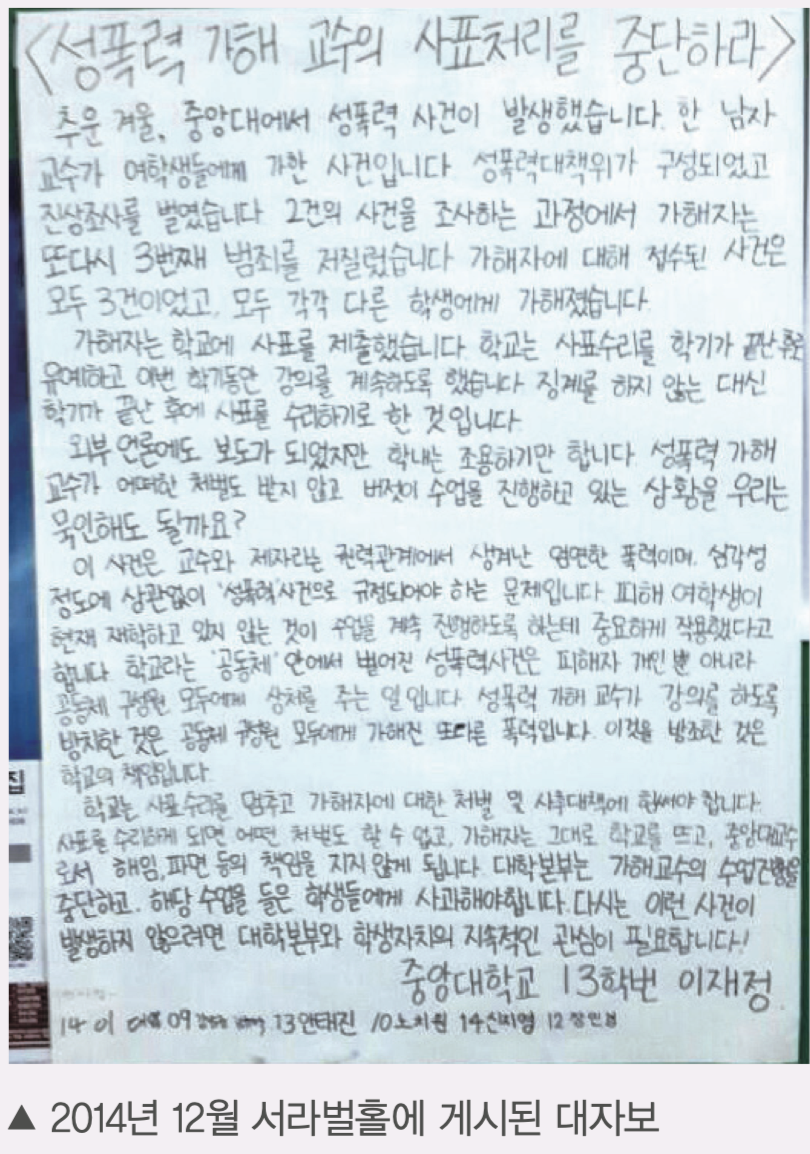 <성폭력 가해 교수의 사표처리를 중단하라>
추운 겨울, 중앙대에서 성폭력 사건이 발생했습니다. 한 남자
교수가 여학생들에게 가한 사건입니다. 성폭력대책위가 구성되었고
진상조사를 벌였습니다. 2건의 사건을 조사하는 과정에서 가해자는
또다시 3번째 범죄를 저질렀습니다. 가해자에 대해 접수된 사건은
모두 3건이었고, 모두 각각 다른 학생에게 가해졌습니다.
가해자는 학교에 사표를 제출했습니다. 학교는 사표수리를 학기가 끝난 후로
유예하고 이번 학기동안 강의를 계속하도록 했습니다. 징계를 하지 않는 대신
학기가 끝난 후에 사표를 수리하기로 한 것입니다.
외부 언론에도 보도가 되었지만 학내는 조용하기만 합니다. 성폭력 가해
교수가 어떠한 처벌도 받지 않고 버젓이 수업을 진행하고 있는 상황을 우리는
묵인해도 될까요?
이 사건은 교수와 제자라는 권력관계에서 생겨난 엄연한 폭력이며, 심각성
정도에 상관없이 '성폭력'사건으로 규정되어야 하는 문제입니다. 피해 여학생이
현재 재학하고 있지 않는 것이 수업을 계속 진행하도록 하는데 중요하게 작용했다고
합니다. 학교라는 '공동체' 안에서 벌어진 성폭력사건은 피해자 개인 뿐 아니라
공동체 구성원 모두에게 상처를 주는 일입니다. 성폭력 가해 교수가 강의를 하도록
방치한 것은 공동체 구성원 모두에게 가해진 또다른 폭력입니다. 이것을 방조한 것은
학교의 책임입니다.
학교는 사표수리를 멈추고 가해자에 대한 처벌 및 사후대책에 힘써야 합니다.
사표를 수리하게 되면 어떤 처벌도 할 수 없고, 가해자는 그대로 학교를 뜨고, 중앙대교수
로서 해임, 파면 등의 책임을 지지 않게 됩니다. 대학본부는 가해교수의 수업진행을
중단하고, 해당 수업을 들은 학생들에게 사과해야합니다. 다시는 이런 사건이
발생하지 않으려면 대학본부와 학생자치의 지속적인 관심이 필요합니다!
중앙대학교 13학번 이재정
14 이 09 13안태진 10노치원 14신지영 12
집
▲ 2014년 12월 서라벌홀에 게시된 대자보